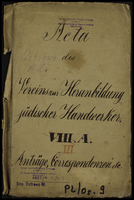 Acta
des
Vereins zur Heranbildung
jüdischer Handwerker.
VIII. A.
III
Anträge, Correspondenzen etc.
Pl/Os. 9